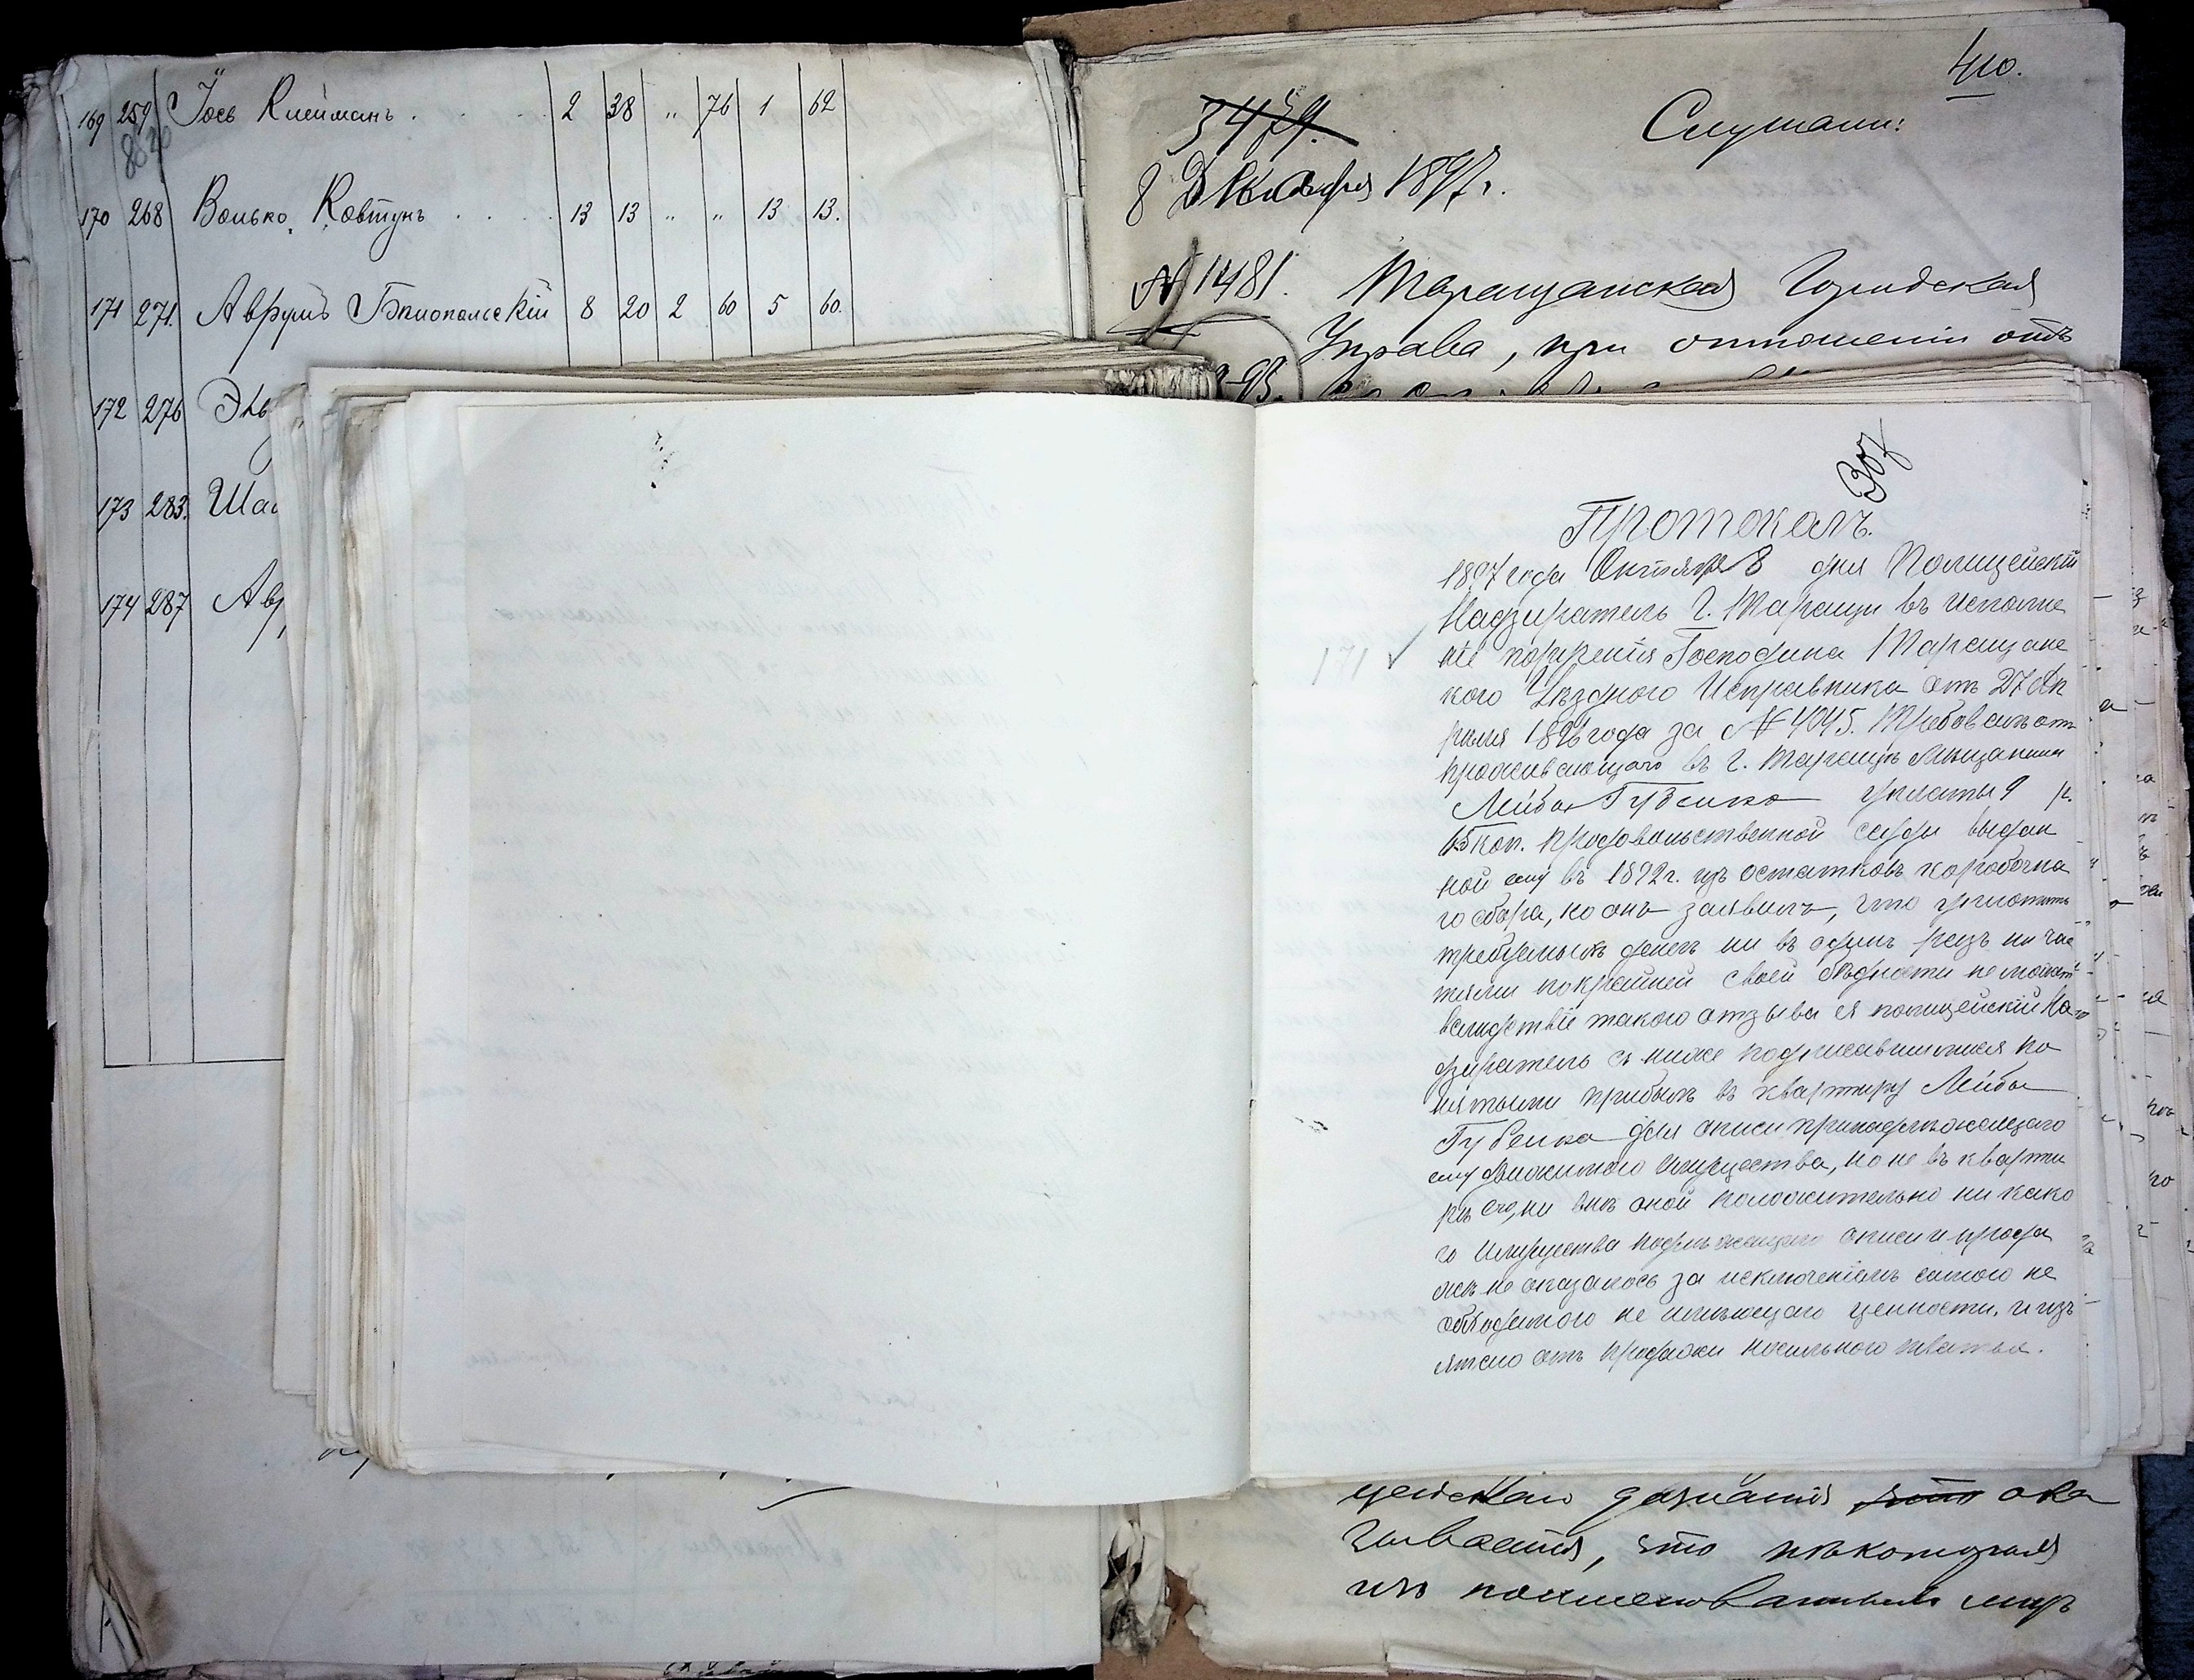 169 259 Іось Клейманъ . . . 2 38 " 76 1 62
170 268 Волько Ковтунъ . . . 13 13 " " 13 13.
171 271. Аврумъ Бялопольскій 8 20 2 60 5 60.
172 276
173 283.
174 287
410.
3479.
Слушали:
8 Декабря 1897 г.
№ 1481. Таращанская Городская
Управа, при отношеніи отъ
307
Протоколъ.
171 ✓
1897 года Октября 8 дня Полицейскій
Надзиратель г. Таращи въ исполне
ніе порученія Господина Таращанс
кого Уѣзднаго Исправника отъ 27 Ап
рѣля 1896 года за № 4045. Требовалъ отъ
проживающаго въ г. Таращѣ Мѣщанина
Лейба Губенко уплаты 9 р.
45 коп. продовольственной ссуды выдан
ной ему въ 1892 г. изъ остатковъ коробочна
го сбора, но онъ заявилъ, что уплотить
требуемыхъ денегъ ни въ одинъ разъ ни час
тями по крайней своей бѣдности не можетъ
вслидствіе такого отзыва я полицейскій На
дзиратель съ ниже подписавшимися по
нятыми прибылъ въ квартиру Лейбы
Губенка для описи принадлѣжащаго
ему движимого имущества, но не въ кварти
рѣ его, ни внѣ оной положительно ни како
го имущества подлѣжащаго описи и прода
жѣ не оказалось за исключеніемъ самого не
обходимого не имѣющаго ценности, и изъ
ятаго отъ продажи носильного платья.
цейскаго дознанія что ока
зывается, что нѣкоторыя
изъ поименованныхъ лицъ